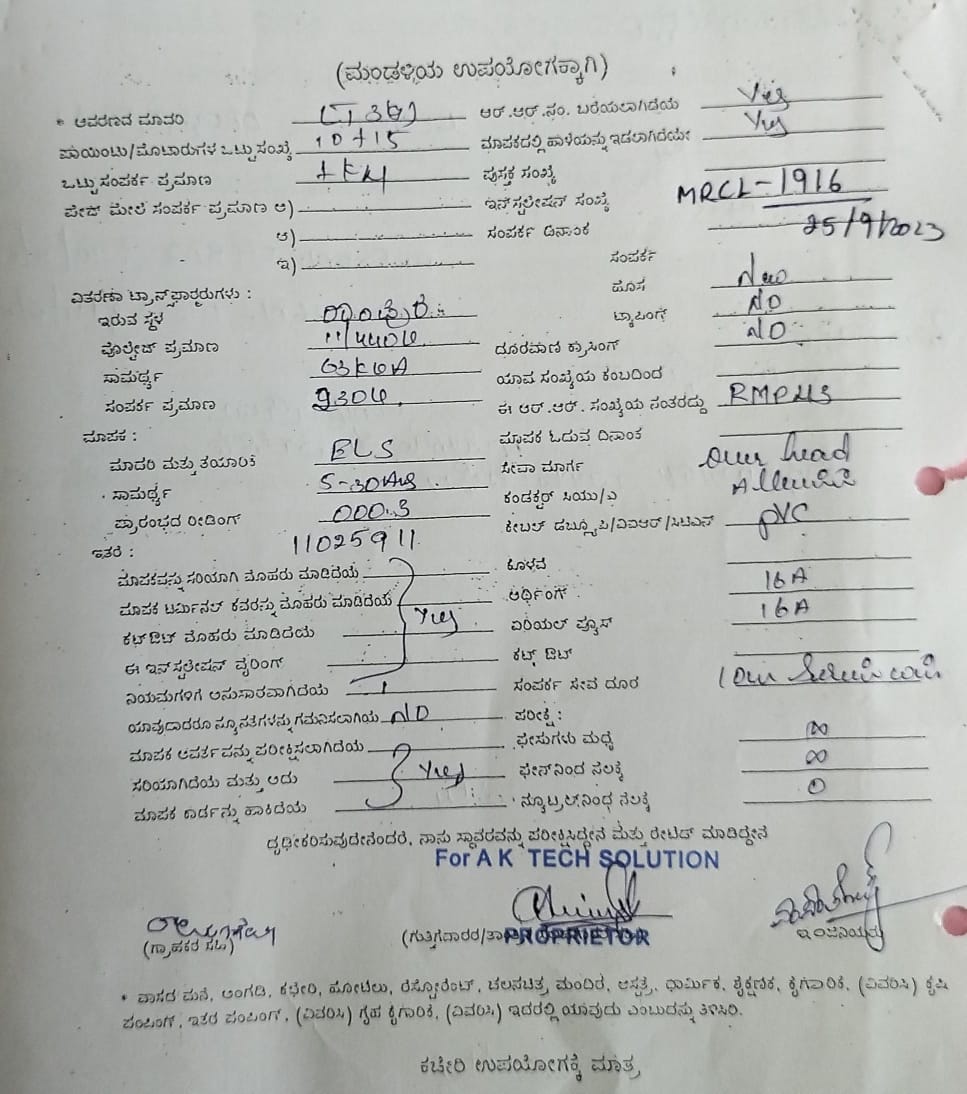 (ಮಂಡಳಿಯ ಉಪಯೋಗಕ್ಕಾಗಿ)
* ಆವರಣದ ಮಾದರಿ ಆರ್.ಆರ್.ನಂ. ಬರೆಯಲಾಗಿದೆಯೆ Yes
ಪಾಯಿಂಟು/ಮೋಟಾರುಗಳ ಒಟ್ಟು ಸಂಖ್ಯೆ 10+15 ಮಾಪಕದಲ್ಲಿ ಹಾಳೆಯನ್ನು ಇಡಲಾಗಿದೆಯೇ Yes
ಒಟ್ಟು ಸಂಪರ್ಕ ಪ್ರಮಾಣ ಪುಸ್ತಕ ಸಂಖ್ಯೆ
ಪೇಜ್ ಮೇಲೆ ಸಂಪರ್ಕ ಪ್ರಮಾಣ ಅ) ಇನ್‌ಸ್ಟಲೇಷನ್ ಸಂಖ್ಯೆ MRCL-1916
ಆ) ಸಂಪರ್ಕ ದಿನಾಂಕ 25/9/2023
ಇ) ಸಂಪರ್ಕ
ವಿತರಣಾ ಟ್ರಾನ್ಸ್‌ಫಾರ್ಮರುಗಳು : ಹೊಸ
ಇರುವ ಸ್ಥಳ ಟ್ಯಾಪಿಂಗ್ NO
ವೋಲ್ಟೇಜ್ ಪ್ರಮಾಣ 11/440V ದೂರವಾಣಿ ಕ್ರಾಸಿಂಗ್ NO
ಸಾಮರ್ಥ್ಯ 63KVA ಯಾವ ಸಂಖ್ಯೆಯ ಕಂಬದಿಂದ
ಸಂಪರ್ಕ ಪ್ರಮಾಣ ಈ ಆರ್.ಆರ್. ಸಂಖ್ಯೆಯ ನಂತರದ್ದು
ಮಾಪಕ : ಮಾಪಕ ಓದುವ ದಿನಾಂಕ
ಮಾದರಿ ಮತ್ತು ತಯಾರಿಕೆ ಸೇವಾ ಮಾರ್ಗ over head
ಸಾಮರ್ಥ್ಯ 5-30 ಕಂಡಕ್ಟರ್ ಸಿಯು/ಎ
ಪ್ರಾರಂಭದ ರೀಡಿಂಗ್ 000.3 ಕೇಬಲ್ ಡಬ್ಲ್ಯೂಪಿ/ವಿಐಆರ್/ಸಿಟಿಎಸ್ PVC
ಇತರೆ : 11025911
ಮಾಪಕವನ್ನು ಸರಿಯಾಗಿ ಮೊಹರು ಮಾಡಿದೆಯೆ ಕೊಳವೆ
ಮಾಪಕ ಟರ್ಮಿನಲ್ ಕವರನ್ನು ಮೊಹರು ಮಾಡಿದೆಯೆ Yes ಅರ್ಥಿಂಗ್ 16A
ಕಟ್‌ಔಟ್ ಮೊಹರು ಮಾಡಿದೆಯೆ ಏರಿಯಲ್ ಫ್ಯೂಸ್ 16A
ಈ ಇನ್‌ಸ್ಟಲೇಷನ್ ವೈರಿಂಗ್ ಕಟ್ ಔಟ್
ನಿಯಮಗಳಿಗೆ ಅನುಸಾರವಾಗಿದೆಯೆ ಸಂಪರ್ಕ ಸೇವೆ ದೂರ
ಯಾವುದಾದರೂ ನ್ಯೂನತೆಗಳನ್ನು ಗಮನಿಸಲಾಗಿಯೆ NO ಪರೀಕ್ಷೆ :
ಮಾಪಕ ಆವರ್ತವನ್ನು ಪರೀಕ್ಷಿಸಲಾಗಿದೆಯೆ ಫೇಸುಗಳು ಮಧ್ಯೆ ∞
ಸರಿಯಾಗಿದೆಯೆ ಮತ್ತು ಅದು Yes ಫೇಸ್‌ನಿಂದ ನೆಲಕ್ಕೆ ∞
ಮಾಪಕ ಕಾರ್ಡನ್ನು ಹಾಕಿದೆಯೆ ನ್ಯೂಟ್ರಲ್‌ನಿಂಧ ನೆಲಕ್ಕೆ 0
ದೃಢೀಕರಿಸುವುದೇನೆಂದರೆ, ನಾನು ಸ್ಥಾವರವನ್ನು ಪರೀಕ್ಷಿಸಿದ್ದೇನೆ ಮತ್ತು ರೇಟೆಡ್ ಮಾಡಿದ್ದೇನೆ
For A K TECH SOLUTION
(ಗ್ರಾಹಕರ ಸಹಿ) (ಗುತ್ತಿಗೆದಾರರ/ PROPRIETOR ಇಂಜಿನಿಯರು
* ವಾಸದ ಮನೆ, ಅಂಗಡಿ, ಕಛೇರಿ, ಹೋಟೆಲು, ರೆಸ್ಟೋರೆಂಟ್, ಚಲನಚಿತ್ರ ಮಂದಿರ, ಆಸ್ಪತ್ರೆ, ಧಾರ್ಮಿಕ, ಶೈಕ್ಷಣಿಕ, ಕೈಗಾರಿಕೆ, (ವಿವರಿಸಿ) ಕೃಷಿ
ಪಂಪಿಂಗ್, ಇತರ ಪಂಪಿಂಗ್, (ವಿವರಿಸಿ) ಗೃಹ ಕೈಗಾರಿಕೆ, (ವಿವರಿಸಿ) ಇದರಲ್ಲಿ ಯಾವುದು ಎಂಬುದನ್ನು ತಿಳಿಸಿರಿ.
ಕಚೇರಿ ಉಪಯೋಗಕ್ಕೆ ಮಾತ್ರ